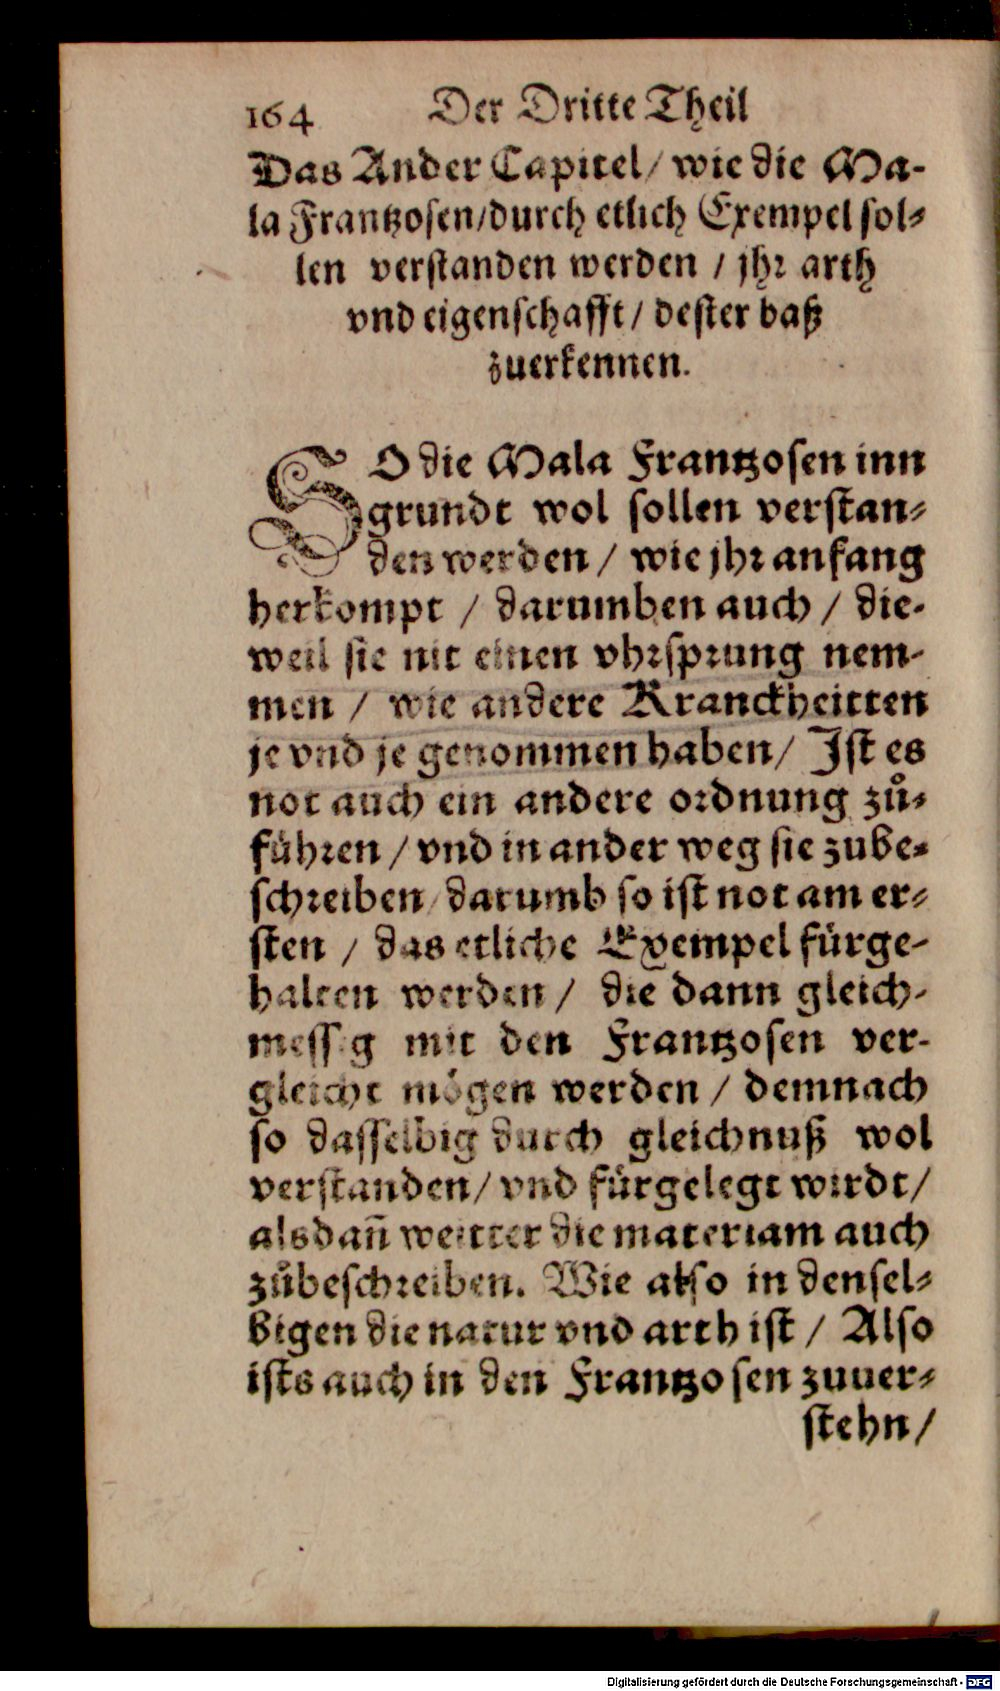 164 Der Dritte Theil
Das Ander Capitel/ wie die Ma-
la Frantzosen/durch etlich Exempel sol-
len verstanden werden / jhr arth
vnd eigenschafft/ dester baß
zuerkennen.
SO die Mala Frantzosen inn
grundt wol sollen verstan-
den werden / wie jhr anfang
herkompt / darumben auch / die-
weil sie nit einen vhrsprung nem-
men / wie andere Kranckheitten
je vnd je genommen haben/ Ist es
not auch ein andere ordnung zů-
führen / vnd in ander weg sie zube-
schreiben/ darumb so ist not am er-
sten / das etliche Exempel fürge-
halten werden / die dann gleich-
messig mit den Frantzosen ver-
gleicht mögen werden / demnach
so dasselbig durch gleichnuß wol
verstanden/ vnd fürgelegt wirdt/
alsdañ weitter die materiam auch
zůbeschreiben. Wie also in densel-
bigen die natur vnd arth ist / Also
ists auch in den Frantzosen zuuer-
stehn/
Digitalisierung gefördert durch die Deutsche Forschungsgemeinschaft - DFG